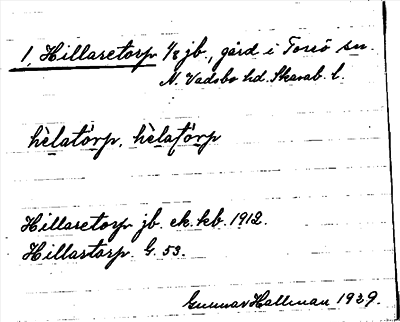 1, Hillaretorp 1/8 jb., gård i Torsö sn.
N. Vadsbo hd. Skarab. l.
hèlatörp, hèlatörp
Hillaretorp jb. ek. kb. 1912.
Hillastorp G. 53.
Gunnar Hallman 1939.